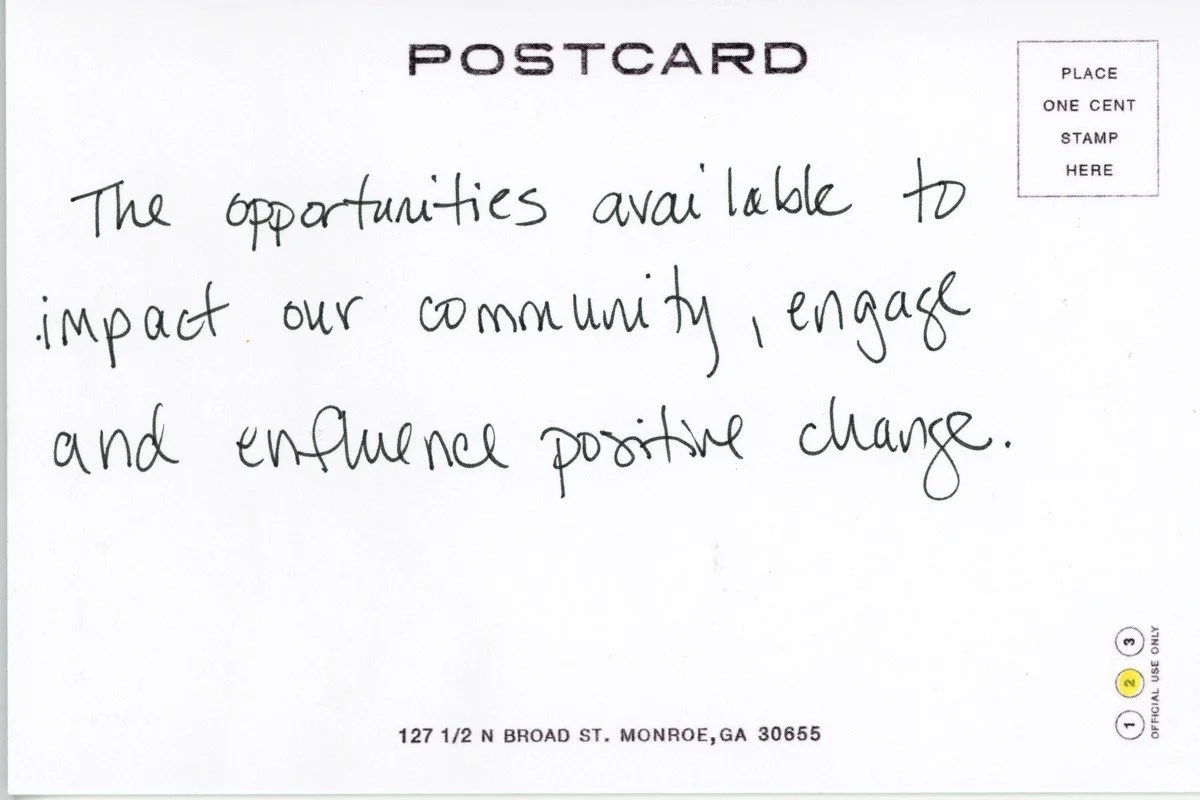 POSTCARD
PLACE
ONE CENT
STAMP
HERE
The opportunities available to
impact our community, engage
and enfluence positive change.
127 1/2 N BROAD ST. MONROE, GA 30655
1 2 3
OFFICIAL USE ONLY